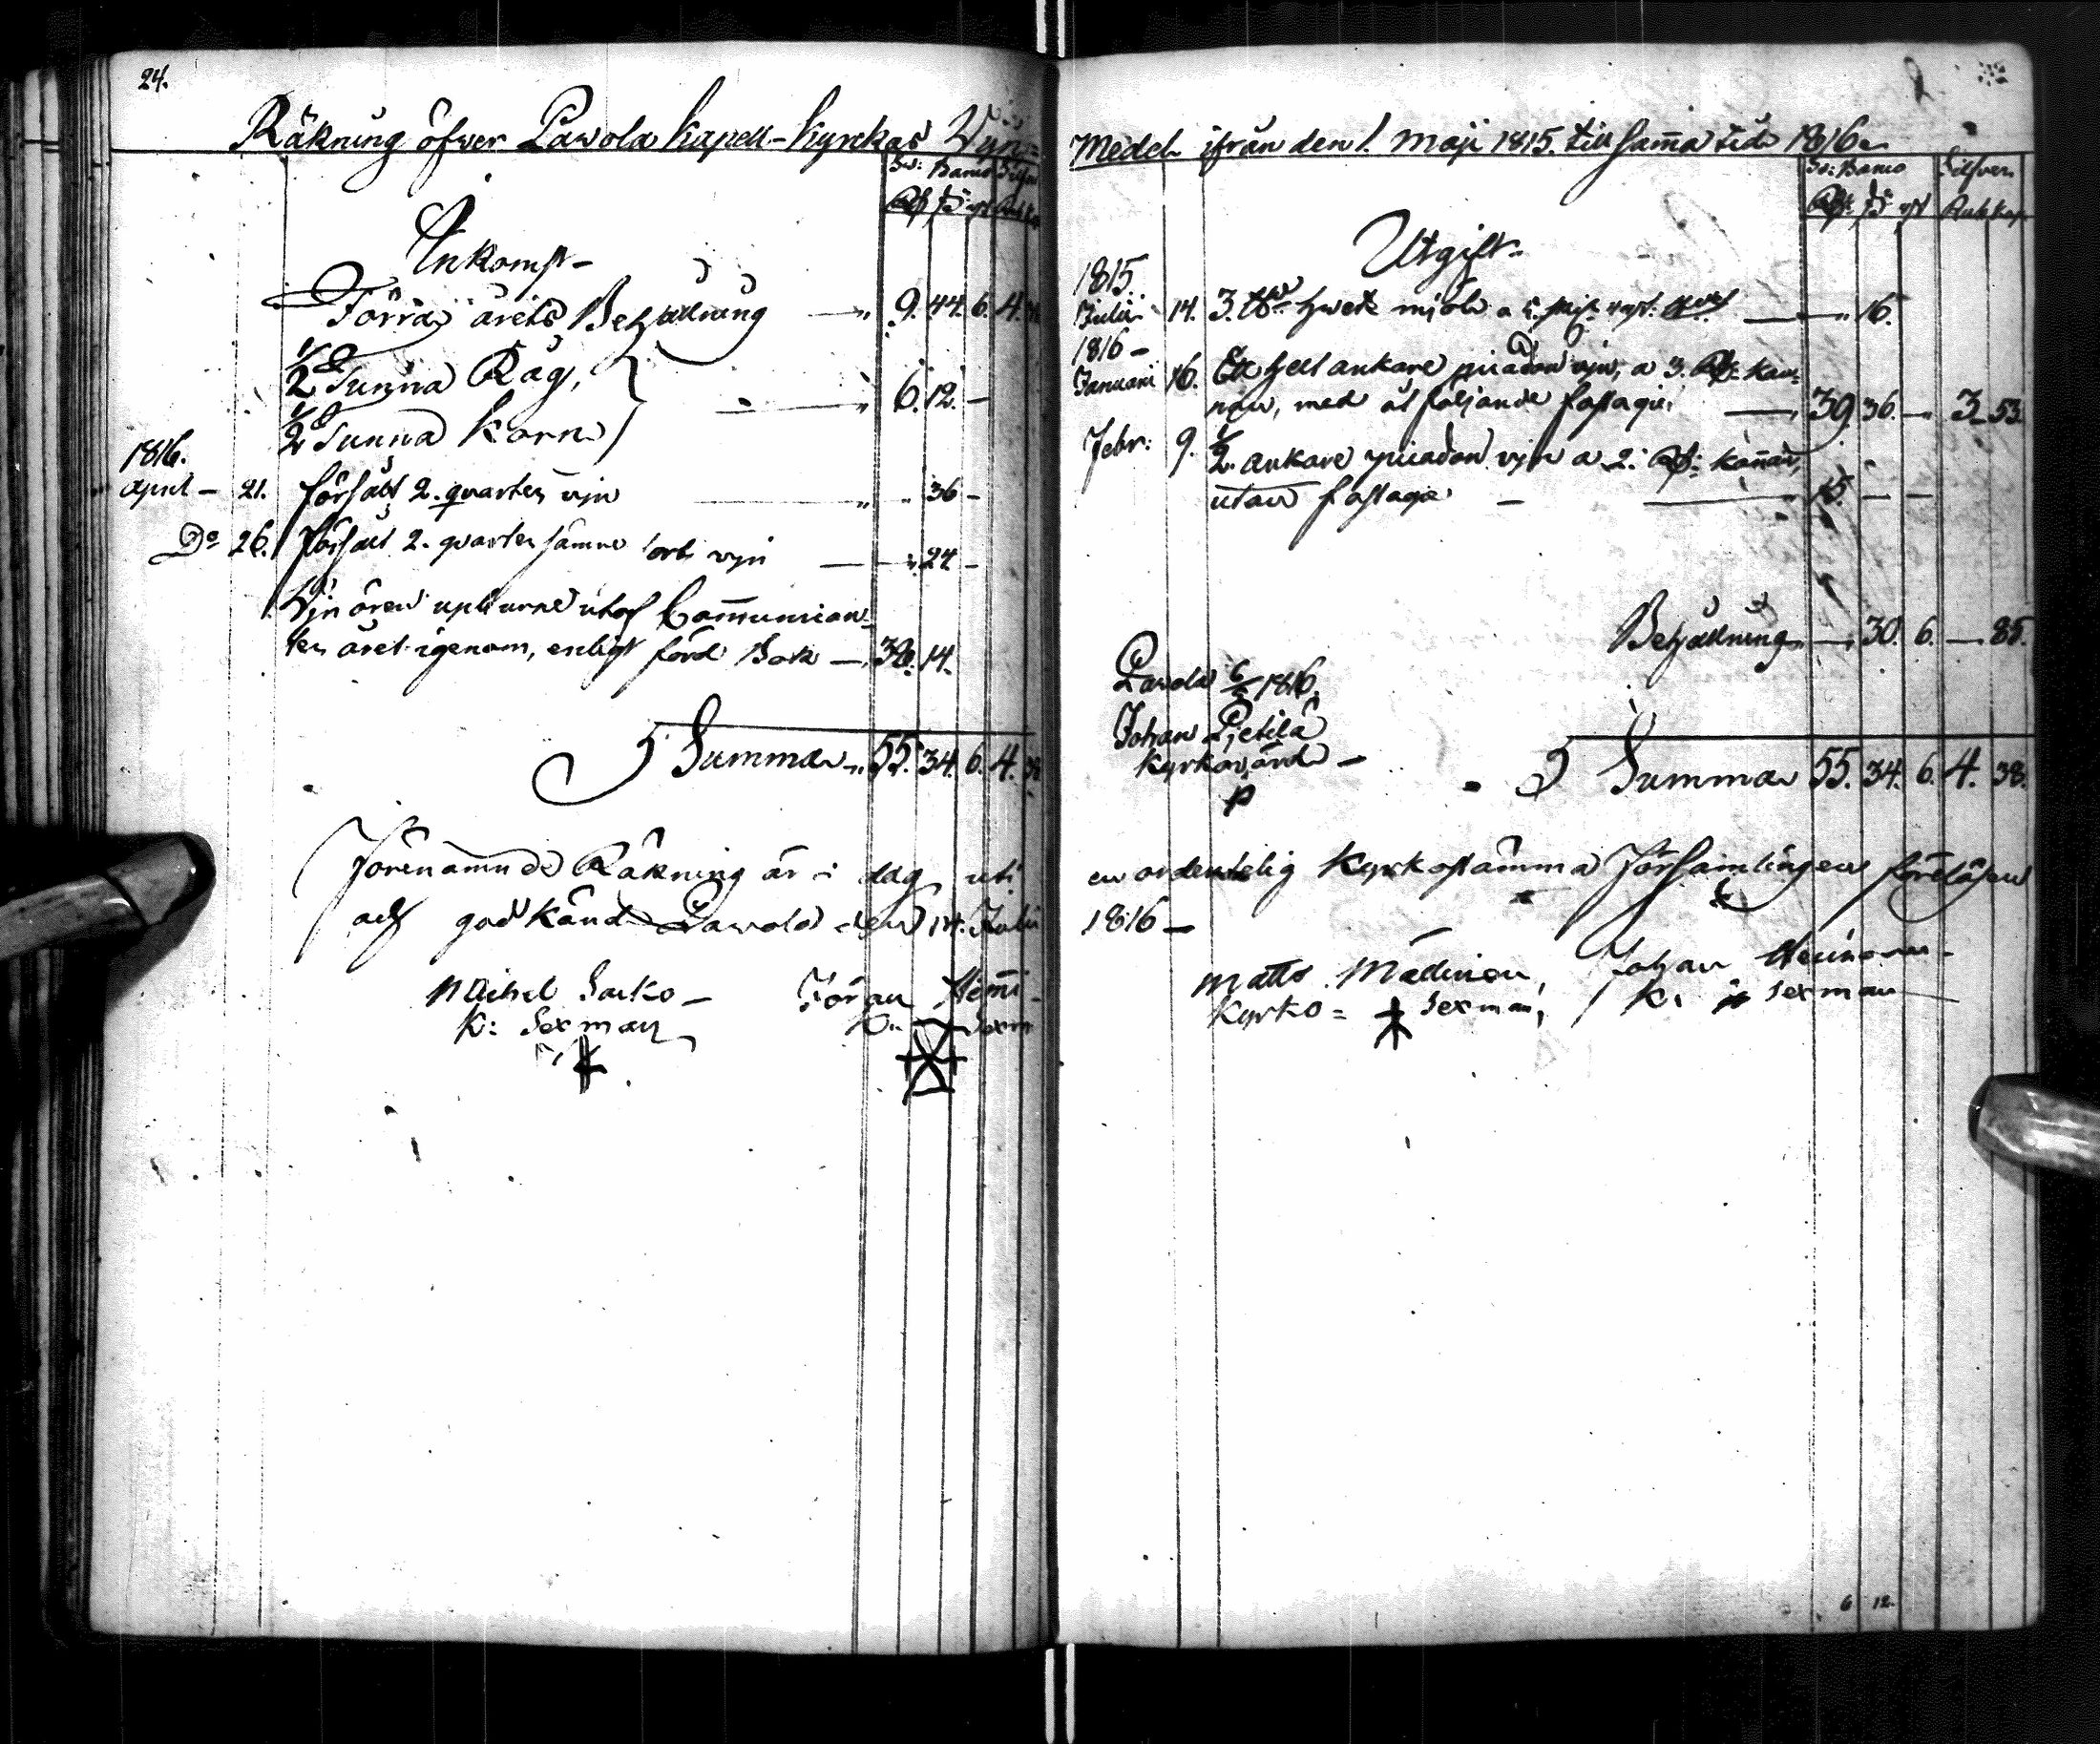 24.
Räkning öfver Pavola Kapell-Kyrkas Vin=
Sv: Banco Silfver
Rd ß rst Rub Kop
Inkomst
Förra årets Behållning — " 9. 44. 6. 4. 38
1/2 Tunna Råg,
1/2 Tunna Korn — " 6. 12. —
1816.
April — 21. försålt 2. qvarter vin — " " 36 —
Do 26. Försålt 2. qvarter sämre sort vin — " 24 —
Vin ören upburne utaf Communian-
ter året igenom, enligt förd Bok — 38. 14.
Summa " 55. 34. 6. 4. 38
Förenämnde Räkning är i dag uti
och godkänd Pavola den 14. Julii
Michel Sarko —
K: Sexman
Jöran Hemi-
K: Sexm
Medel ifrån den 1. Maji 1815. till samma tid 1816
Sv: Banco Silfver
Rd ß rst Rub Kop
Utgift
1815.
Julii 14. 3. hvete mjöl — " 16.
1816 —
Januari 16. Ett helt ankare vin, a 3. Rd: Kan=
nan, med åtföljande fastage — 39. 36. — 3 53
Febr: 9. 1/2 ankare vin a 2. Rd: Kannan,
utan fastage — 15. — —
Behållning — " 30. 6. — 85.
Pavola 6/5 1816.
Johan Pietilä
Kyrkovärd —
Summa 55. 34. 6. 4. 38.
en ordentelig Kyrkostämma Församlingen föreläsen
1816 —
Matts Määtinen,
Kyrko = Sexman,
Johan Heinonen
K: Sexman
6 12.